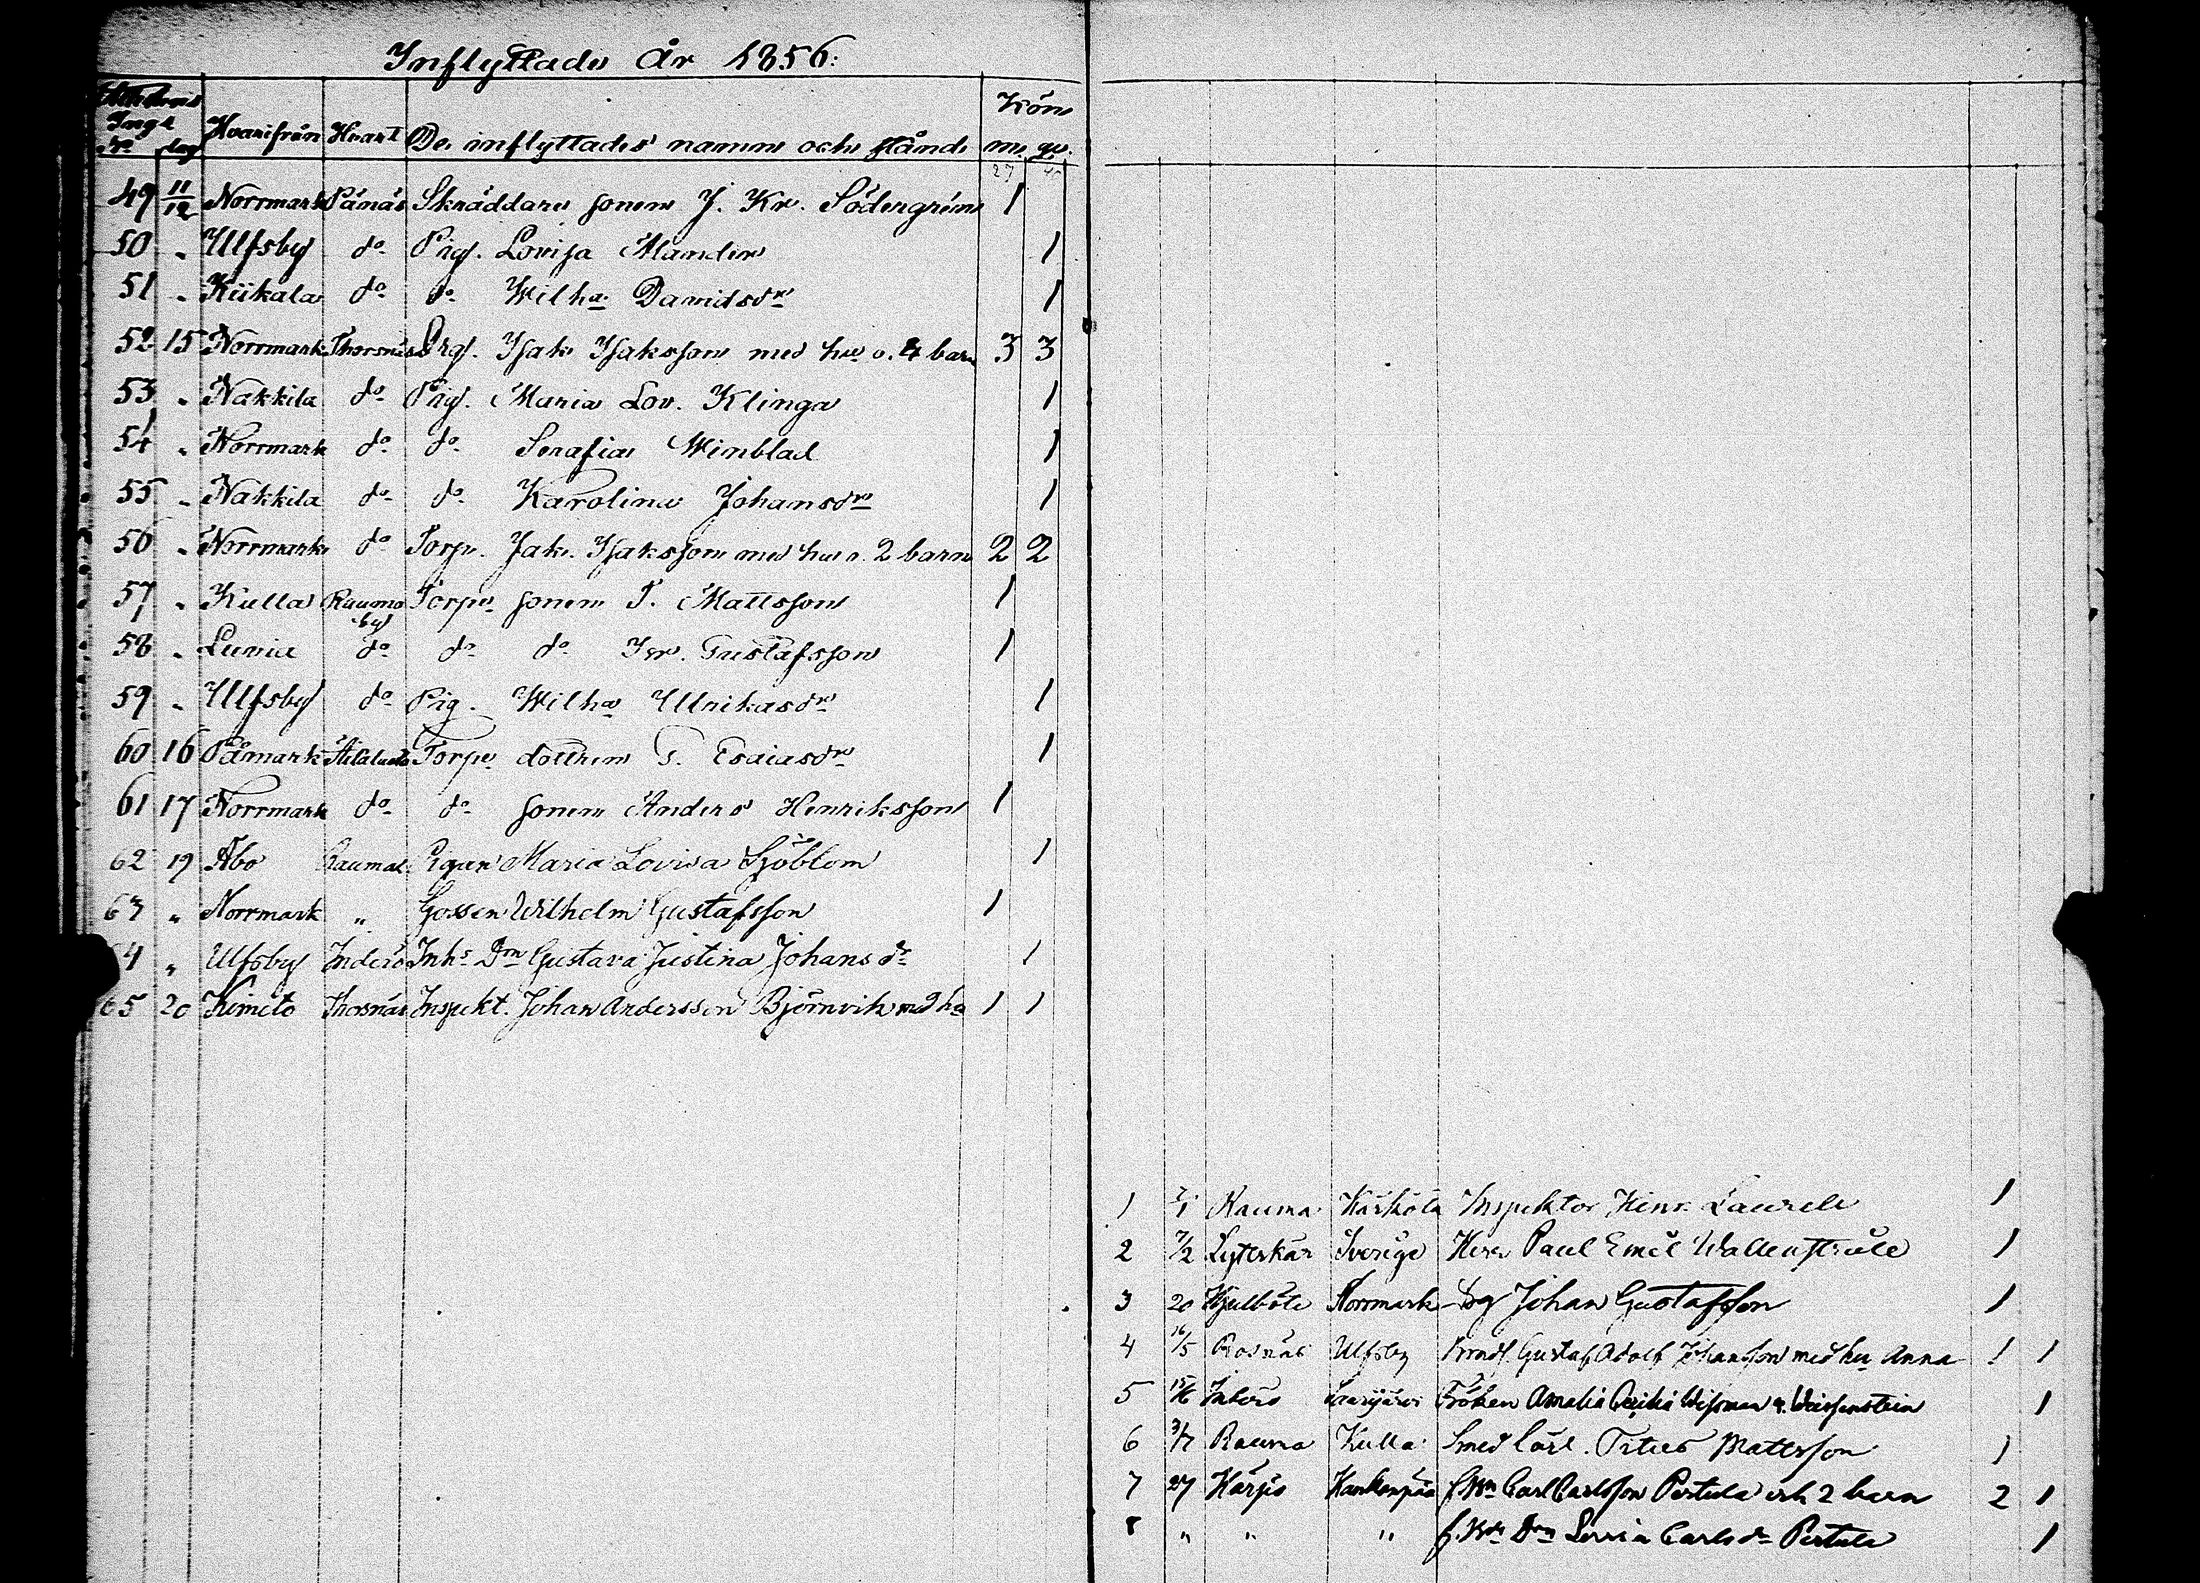 Inflyttade År 1856.
Attestens
Ing:t
N:o dag Hvarifrån Hvart De inflyttades namn och stånd
Kön
m. qv.
49 11/12 Norrmark Pånäs Skräddare sonen J. Kr. Södergrén 1
50 " Ulfsby d:o Pig. Lovisa Mander 1
51 " Kiikala d:o d:o Wilh:a Davidsd:r 1
52 15 Norrmark Thorsnäs Drg. Isak Isaksson med hu o. 4 barn 3 3
53 " Nakkila d:o Pig. Maria Lov. Klinga 1
54 " Norrmark d:o d:o Serafia Winblad 1
55 " Nakkila d:o d:o Karolina Johansd:r 1
56 " Norrmark d:o Torp. Isak Isaksson med hu o. 2 barn 2 2
57 " Kulla Raumo by Torp. sonen T. Mattsson 1
58 " Luvia d:o d:o d:o Gustafsson 1
59 " Ulfsby d:o Pig. Wilh:a Ulrikasd:r 1
60 16 Påmark Torp. dottren Esaiasd:r 1
61 17 Norrmark d:o d:o sonen Anders Henriksson 1
62 19 Åbo Raumal. Pigan Maria Lovisa Sjöblom 1
63 " Norrmark " Gossen Wilhelm Gustafsson 1
64 " Ulfsby Inderö Inh:s D:rn Gustava Justina Johansd:r 1
65 20 Kimito Thorsnäs Inspekt. Johan Andersson Björnvik med hu 1 1
1 7/1 Rauma Kärkölä Inspektor Henr. Laurell 1
2 7/2 Lyttskär Sverige Herr Paul Emil Wallenstråle 1
3 20 Hjulböle Norrmark Drg Johan Gustafsson 1
4 16/5 Rosnäs Ulfsby Gustaf Adolf Johansson med hu Anna 1 1
5 15/6 Inderö Fröken Amalia Cecilia v. Weissenstein 1
6 3/7 Rauma Kulla Smed lärl. Titus Mattsson 1
7 27 Härpö Kankanpää Carl Carlsson Pertula och 2 barn 2 1
8 " " " D:rn Lovisa Carlsd:r Pertula 1